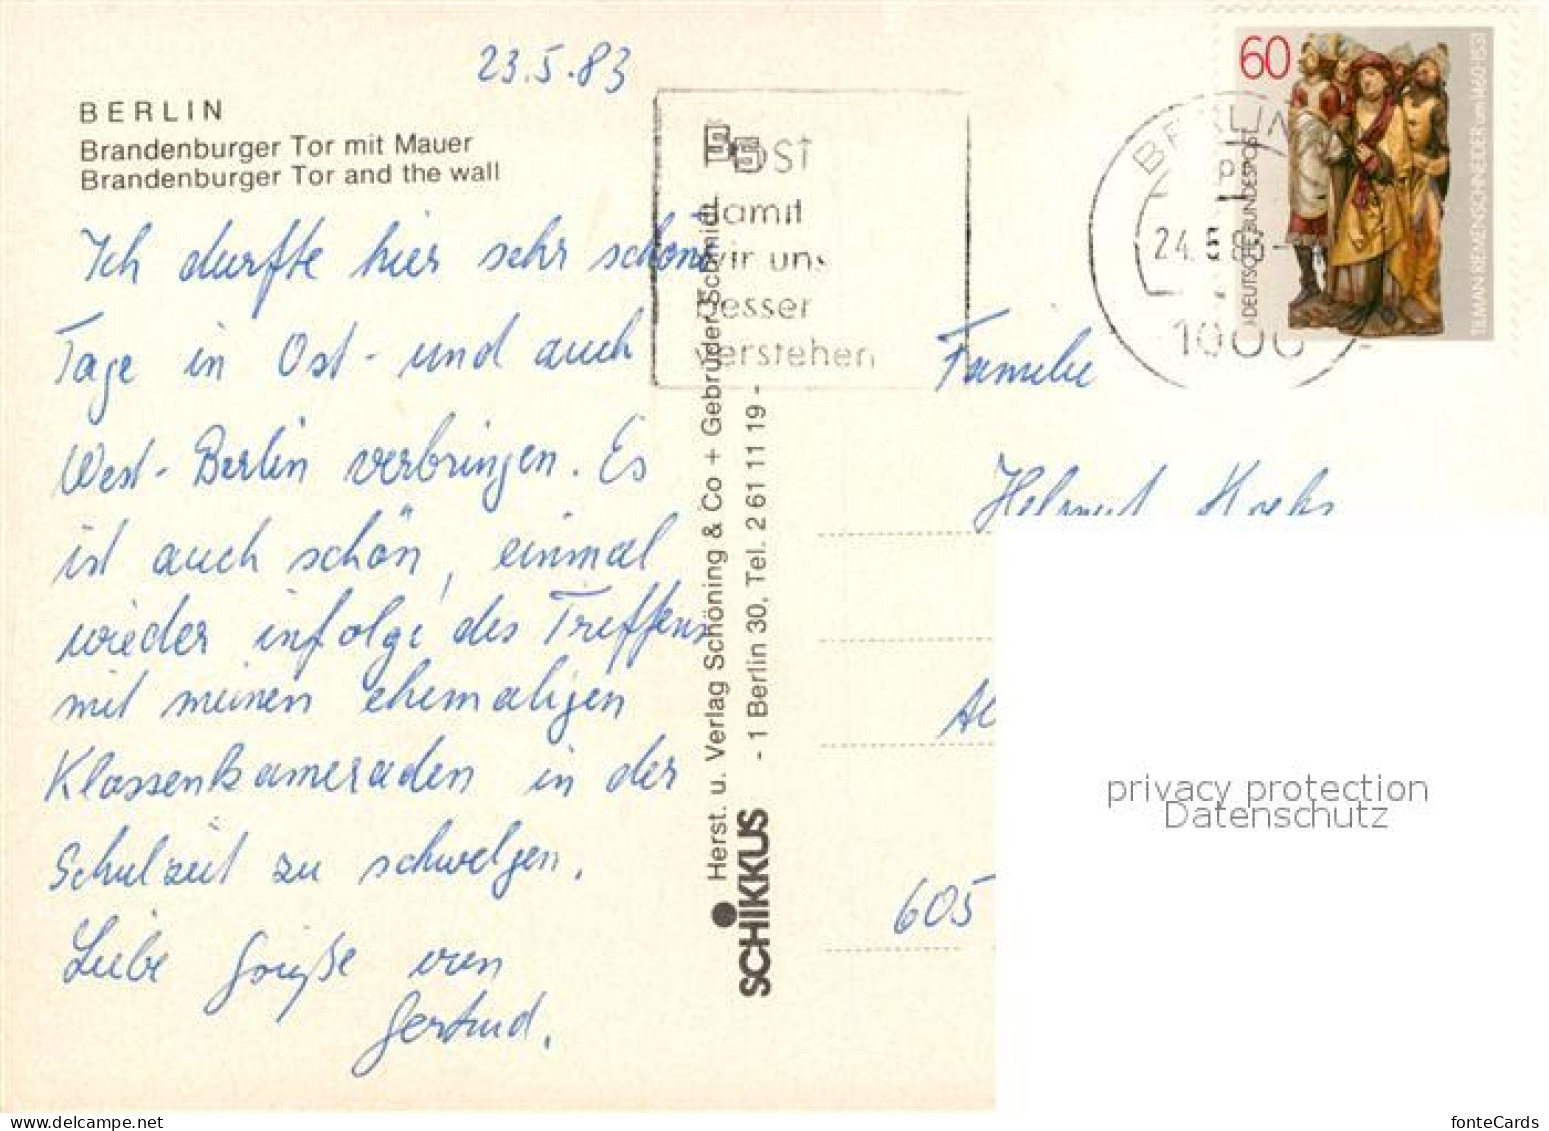 23.5.83
BERLIN
Brandenburger Tor mit Mauer
Brandenburger Tor and the wall
Ich durfte hier sehr schöne
Tage in Ost- und auch
West-Berlin verbringen. Es
ist auch schön, einmal
wieder infolge des Treffens
mit meinen ehemaligen
Klassenkameraden in der
Schulzeit zu schwelgen.
Liebe Grüße von
Gertrud.
Post
damit
wir uns
besser
verstehen
Herst. u. Verlag Schöning & Co + Gebrüder Schmidt
- 1 Berlin 30, Tel. 2 61 11 19 -
SCHIKKUS
BERLIN
24.5.83-
1000
60
DEUTSCHE BUNDESPOST
TILMAN RIEMENSCHNEIDER um 1460-1531
Familie
Helmut
605
privacy protection
Datenschutz
fonteCards